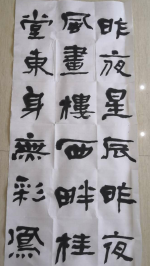 昨夜星辰昨夜
風畫樓西畔桂
堂東身無彩鳳